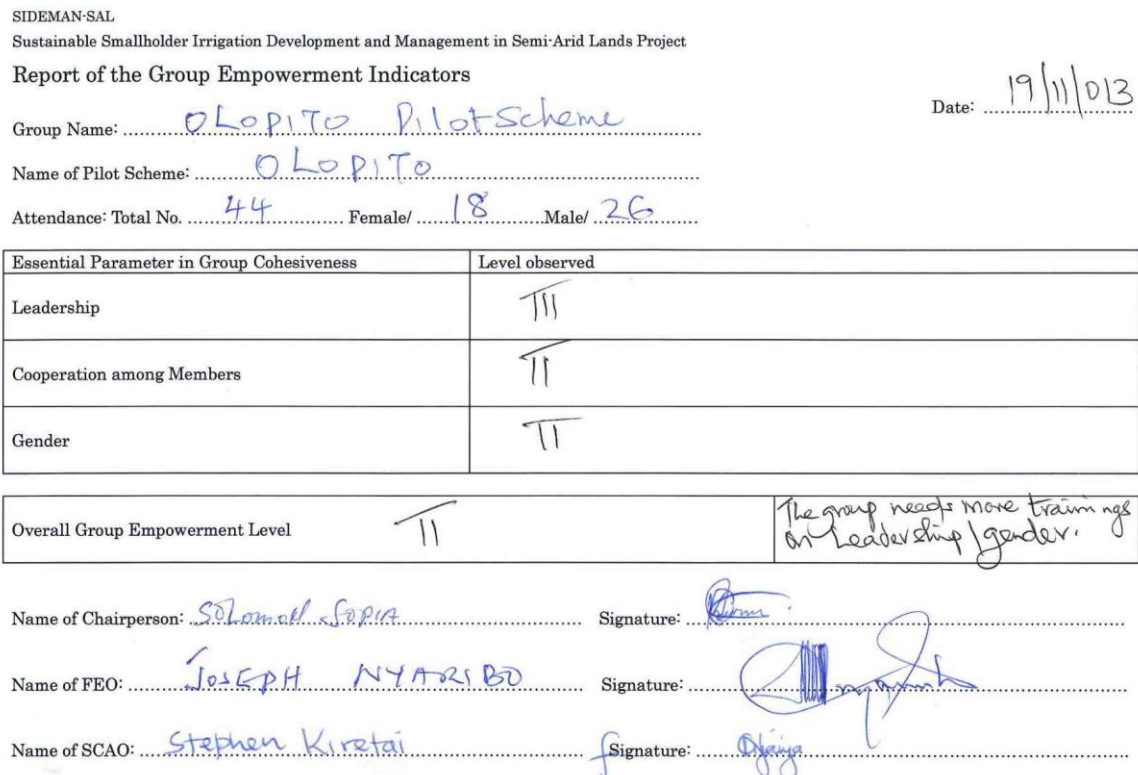 SIDEMAN-SAL
Sustainable Smallholder Irrigation Development and Management in Semi-Arid Lands Project
Report of the Group Empowerment Indicators
Date: 19/11/013
Group Name: OLOPITO Pilot Scheme
Name of Pilot Scheme: OLOPITO
Attendance: Total No. 44 Female/ 18 Male/ 26
Essential Parameter in Group Cohesiveness Level observed
Leadership III
Cooperation among Members II
Gender II
Overall Group Empowerment Level II
The group needs more trainings
on Leadership/gender.
Name of Chairperson: Solomon Sopia Signature:
Name of FEO: JOSEPH NYARIBO Signature:
Name of SCAO: Stephen Kiretai Signature: